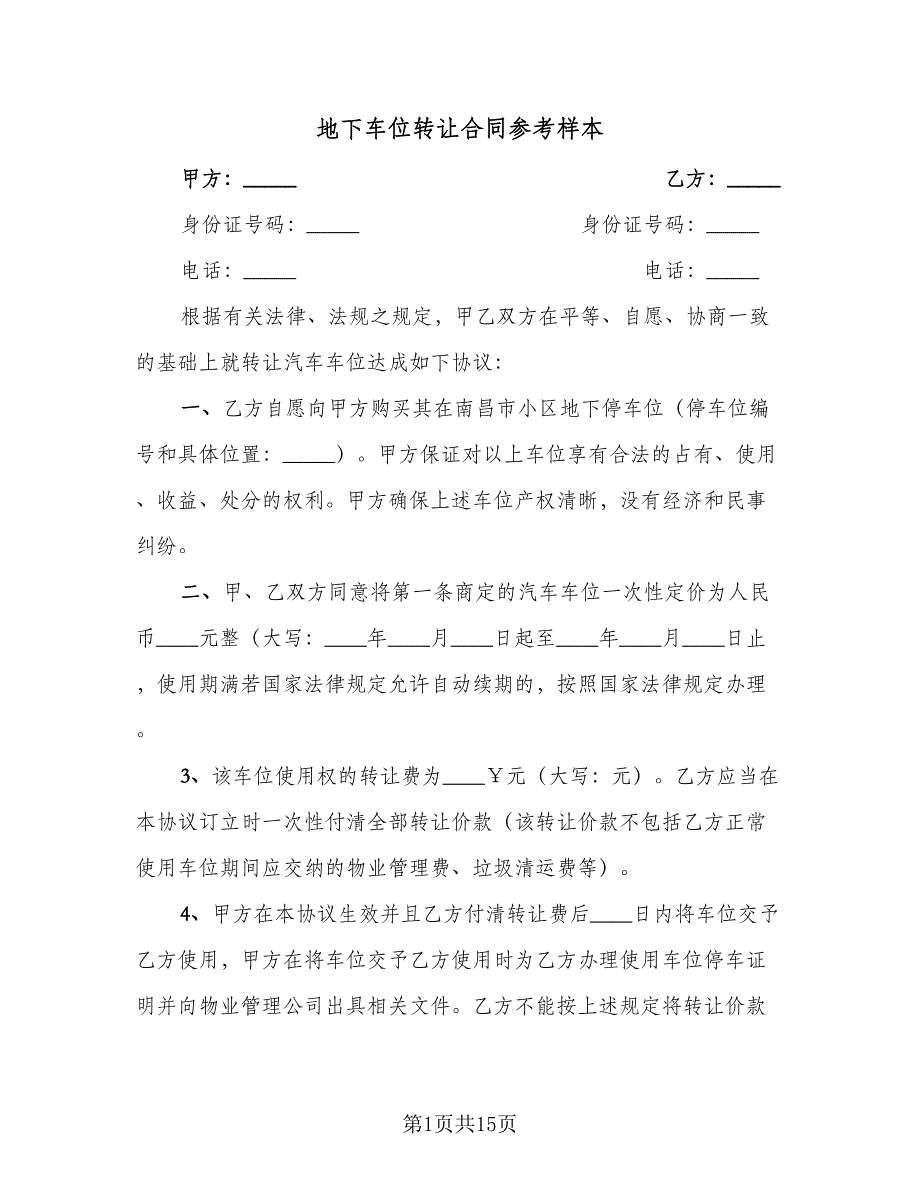 地下车位转让合同参考样本
甲方：_____ 乙方：_____
身份证号码：_____ 身份证号码：_____
电话：_____ 电话：_____
根据有关法律、法规之规定，甲乙双方在平等、自愿、协商一致
的基础上就转让汽车车位达成如下协议：
一、乙方自愿向甲方购买其在南昌市小区地下停车位（停车位编
号和具体位置：_____）。甲方保证对以上车位享有合法的占有、使用
、收益、处分的权利。甲方确保上述车位产权清晰，没有经济和民事
纠纷。
二、甲、乙双方同意将第一条商定的汽车车位一次性定价为人民
币____元整（大写：____年____月____日起至____年____月____日止
，使用期满若国家法律规定允许自动续期的，按照国家法律规定办理
。
3、该车位使用权的转让费为____￥元（大写：元）。乙方应当在
本协议订立时一次性付清全部转让价款（该转让价款不包括乙方正常
使用车位期间应交纳的物业管理费、垃圾清运费等）。
4、甲方在本协议生效并且乙方付清转让费后____日内将车位交予
乙方使用，甲方在将车位交予乙方使用时为乙方办理使用车位停车证
明并向物业管理公司出具相关文件。乙方不能按上述规定将转让价款
第1页共15页